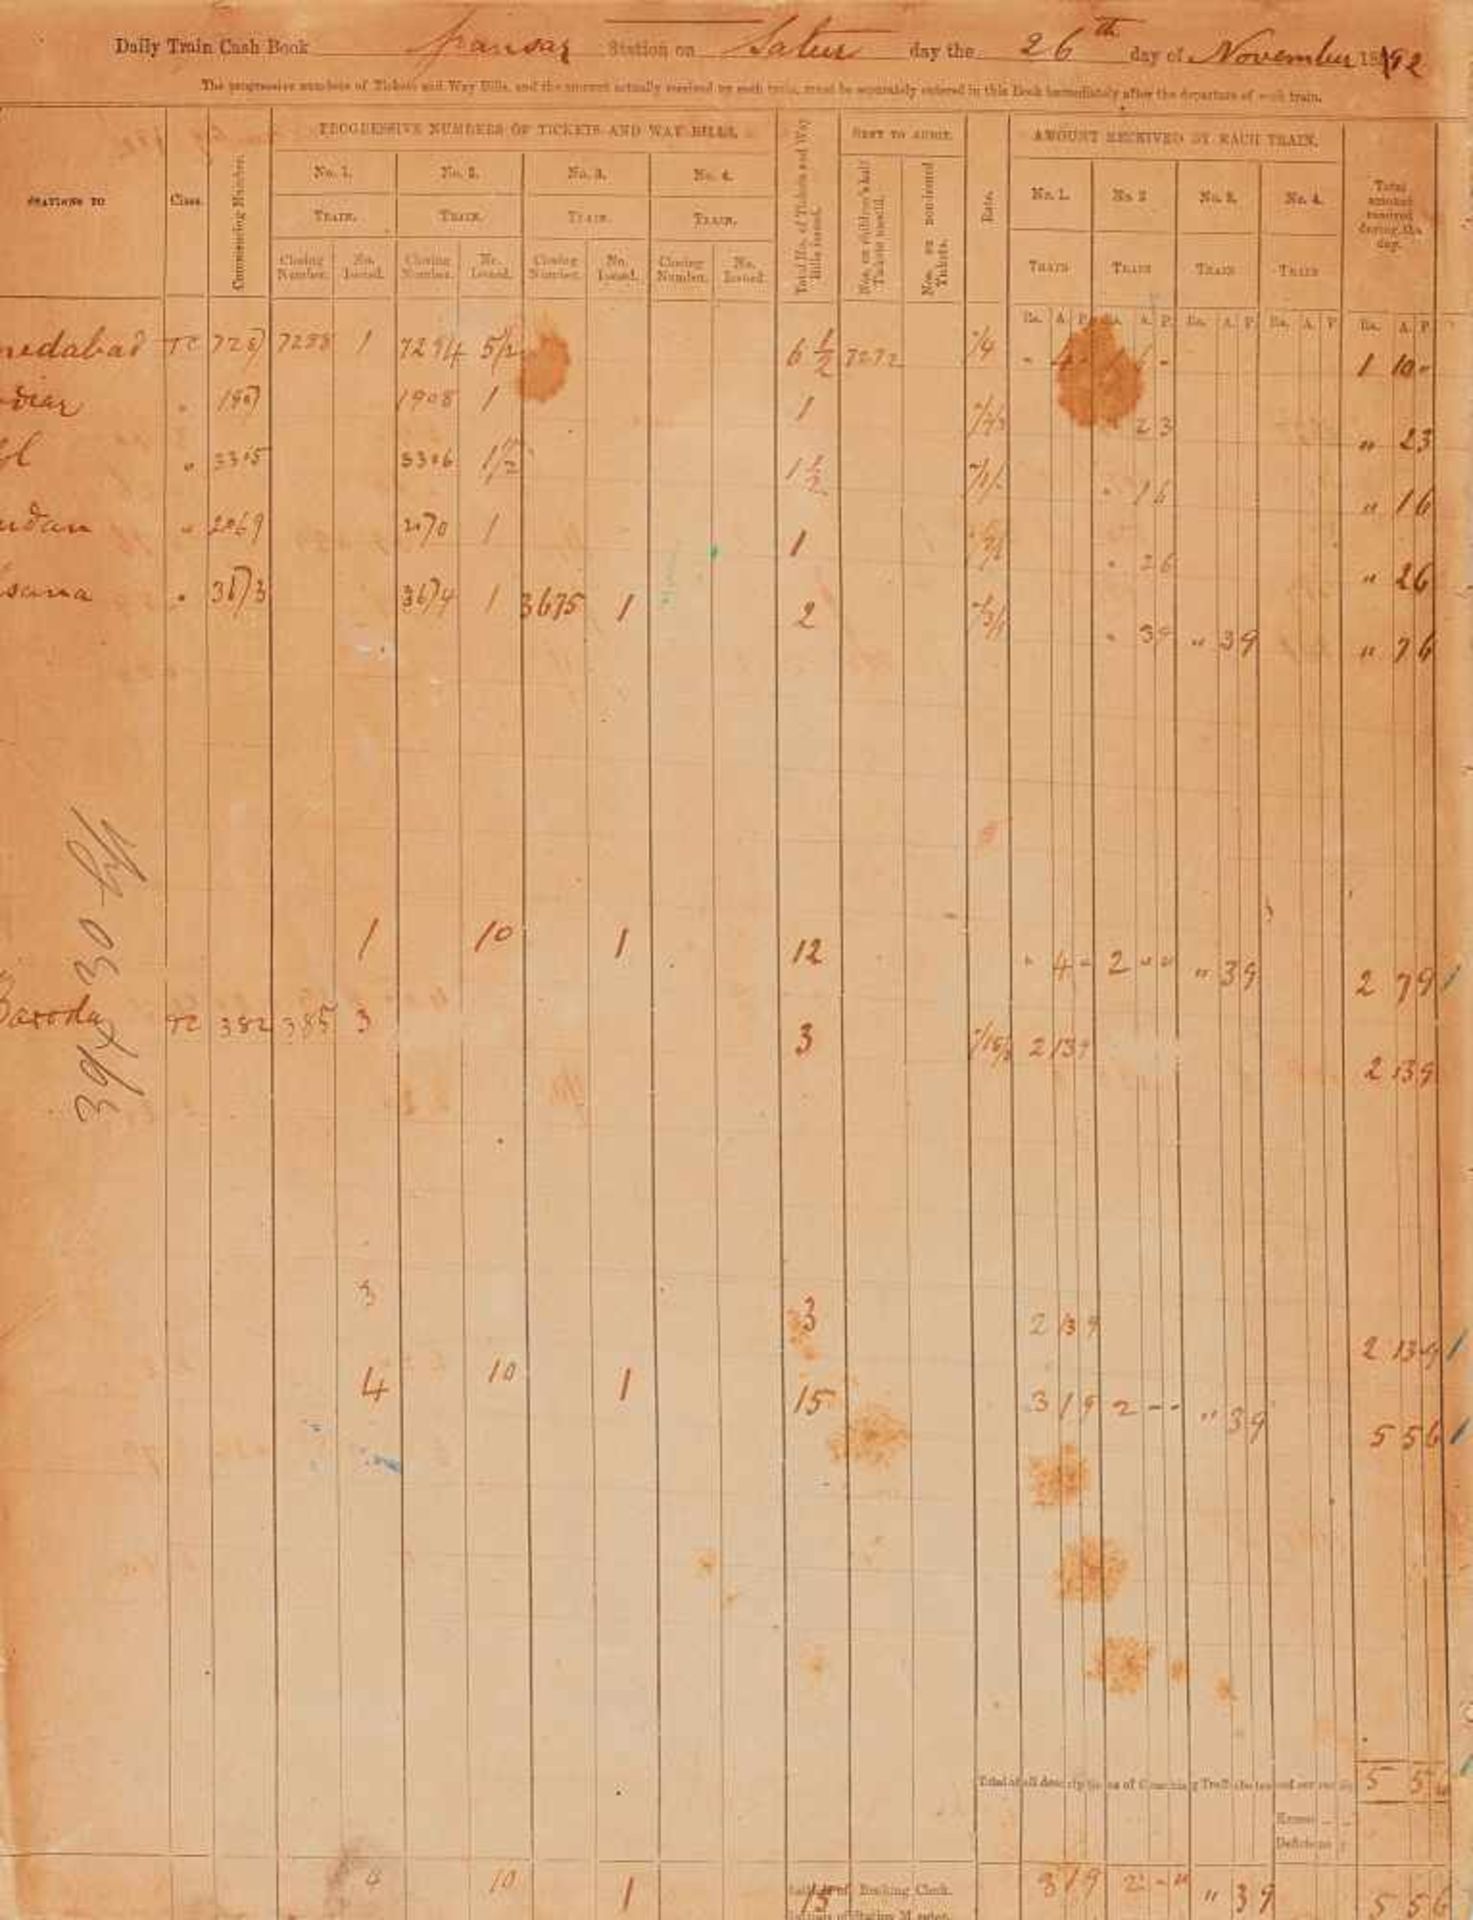 Daily Train Cash Book Station on Satur day the 26th day of November 1892
The progressive numbers of Tickets and Way Bills, and the amount actually received by each train, must be separately entered in this Book immediately after the departure of each train.
STATIONS TO Class. Commencing Number. PROGRESSIVE NUMBERS OF TICKETS AND WAY BILLS. Total No. of Tickets and Way Bills issued. SENT TO AUDIT. Rate. AMOUNT RECEIVED BY EACH TRAIN. Total amount received during the day.
No. 1. No. 2. No. 3. No. 4. Nos. on children's half Tickets issued. Nos. on non-issued Tickets. No. 1. No. 2 No. 3. No. 4.
TRAIN. TRAIN. TRAIN. TRAIN. TRAIN TRAIN TRAIN TRAIN
Closing Number. No. Issued. Closing Number. No. Issued. Closing Number. No. Issued. Closing Number. No. Issued.
Rs. A. P. Rs. A. P. Rs. A. P. Rs. A. P. Rs. A. P.
medabad TC 7288 1 7294 5½ 6 ½ 7272 1 10 "
1908 1 1 " 2 3 " 2 3
3305 3306 1½ 1 ½ " 1 6 " 1 6
2069 2070 1 1 " 2 6 " 2 6
sana 3673 3674 1 3675 1 2 " 3 9 " 3 9 " 7 6
1 10 1 12 " 4 - 2 " " " 3 9 2 7 9
39 x 30
Baroda TC 382 385 3 3 2 13 9 2 13 9
3 3 2 13 9 2 13 9
4 10 1 15 3 1 9 2 - - " 3 9 5 5 6
Total of all descriptions of Coaching Traffic 5 5 6
Excess
Deficiency
4 10 1 15 Booking Clerk. 3 1 9 2 - " " 3 9 5 5 6